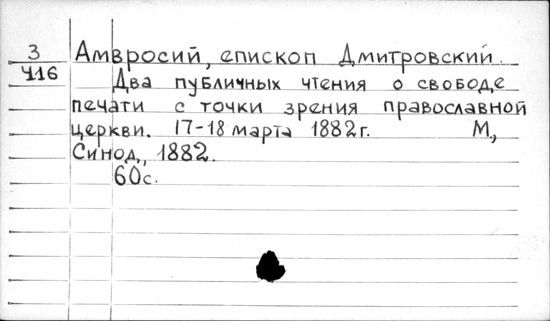 З Амвросий, епископ Дмитровский.
Ч16 Два публичных чтения о свободе
печати с точки зрения православной
церкви. 17-18 марта 1882 г. М,,
Синод., 1882.
60с.